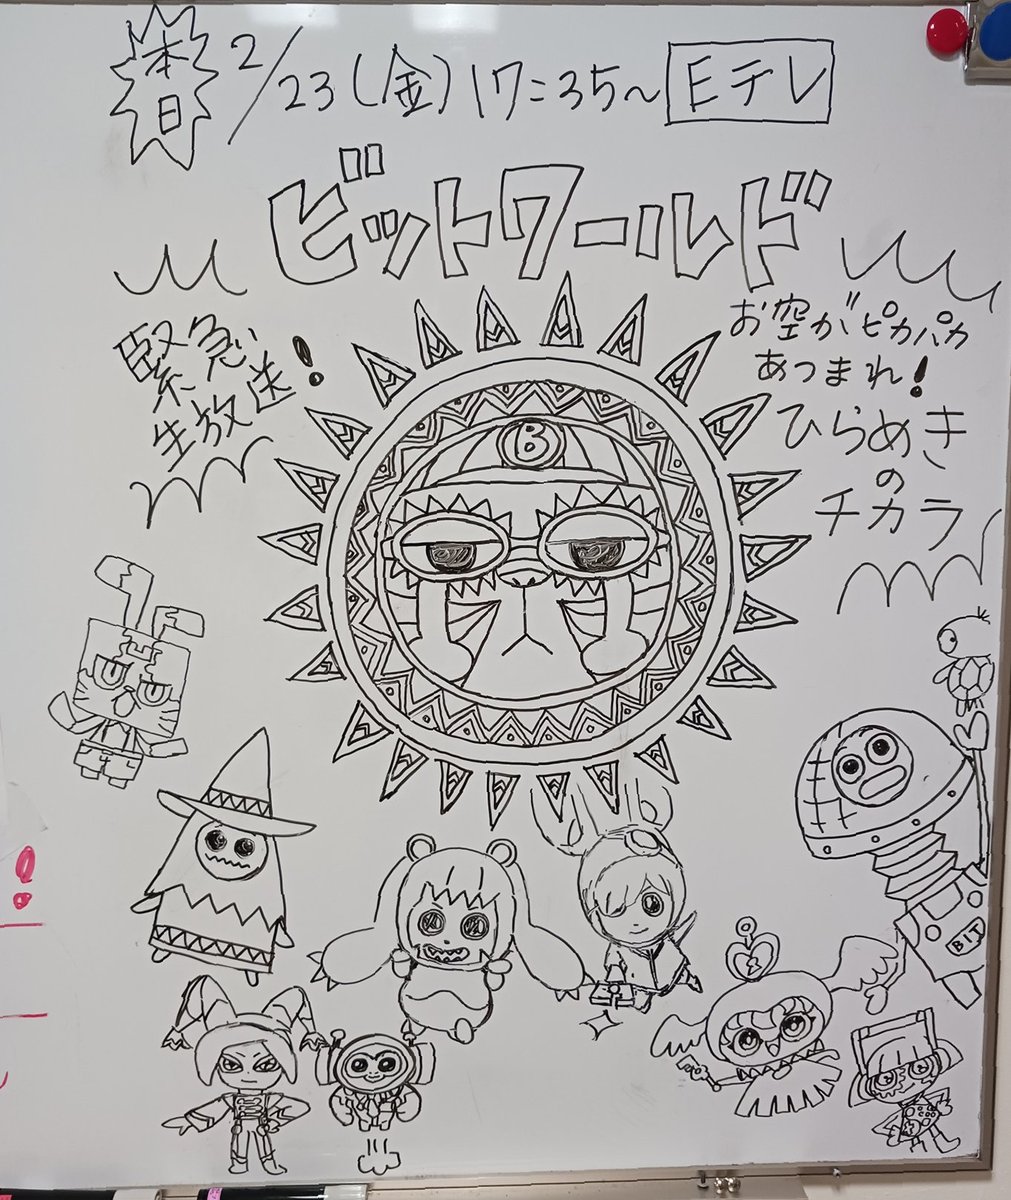 本日
2/23(金)17:35〜 Eテレ
ビットワールド
緊急
生放送!
お空がピカパカ
あつまれ!
ひらめき
の
チカラ
B
BIT